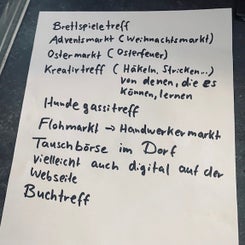 Brettspieletreff
Adventsmarkt (Weihnachtsmarkt)
Ostermarkt (Osterfeuer)
Kreativtreff (Häkeln, Stricken...)
von denen, die es
können, lernen
Hunde gassitreff
Flohmarkt → Handwerkermarkt
Tauschbörse im Dorf
vielleicht auch digital auf der
Webseite
Buchtreff